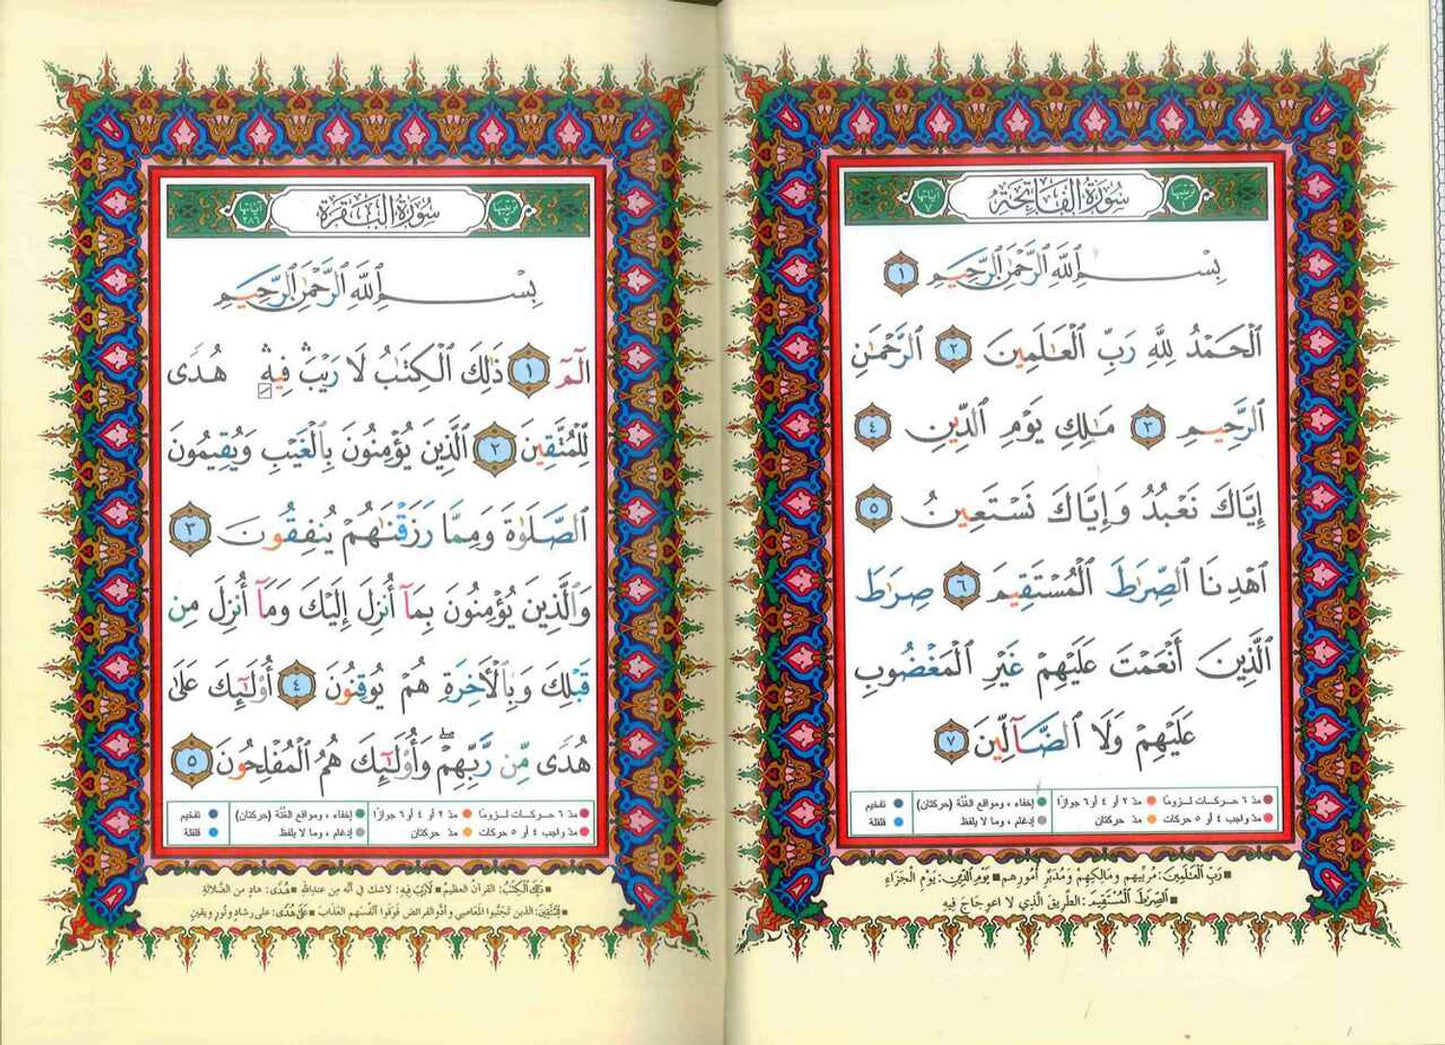 ترتيبها ١
سُورَةُ الفَاتِحَةِ
آياتها ٧
بِسْمِ ٱللَّهِ ٱلرَّحْمَٰنِ ٱلرَّحِيمِ ١
ٱلْحَمْدُ لِلَّهِ رَبِّ ٱلْعَٰلَمِينَ ٢ ٱلرَّحْمَٰنِ
ٱلرَّحِيمِ ٣ مَٰلِكِ يَوْمِ ٱلدِّينِ ٤
إِيَّاكَ نَعْبُدُ وَإِيَّاكَ نَسْتَعِينُ ٥
ٱهْدِنَا ٱلصِّرَٰطَ ٱلْمُسْتَقِيمَ ٦ صِرَٰطَ
ٱلَّذِينَ أَنْعَمْتَ عَلَيْهِمْ غَيْرِ ٱلْمَغْضُوبِ
عَلَيْهِمْ وَلَا ٱلضَّآلِّينَ ٧
مدّ ٦ حركــات لـزومًا مدّ ٢ أو ٤ أو ٦ جوازًا إخفاء، ومواقع الغُنَّة (حركتان) تفخيم
مدّ واجب ٤ أو ٥ حركات مدّ حركتان إدغام، وما لا يلفظ قلقلة
رَبِّ ٱلْعَٰلَمِينَ: مُرَبِّيهم ومَالِكِهم ومُدَبِّر أمُورِهم يَوْمِ ٱلدِّينِ: يَوْمِ الْجَزَاءِ
ٱلصِّرَٰطَ ٱلْمُسْتَقِيمَ: الطَّرِيقَ الَّذِي لا اعوِجَاجَ فِيهِ
ترتيبها ٢
سُورَةُ البَقَرَةِ
آياتها ٢٨٦
بِسْمِ ٱللَّهِ ٱلرَّحْمَٰنِ ٱلرَّحِيمِ
الٓمٓ ١ ذَٰلِكَ ٱلْكِتَٰبُ لَا رَيْبَ ۛ فِيهِ ۛ هُدًى
لِّلْمُتَّقِينَ ٢ ٱلَّذِينَ يُؤْمِنُونَ بِٱلْغَيْبِ وَيُقِيمُونَ
ٱلصَّلَوٰةَ وَمِمَّا رَزَقْنَٰهُمْ يُنفِقُونَ ٣
وَٱلَّذِينَ يُؤْمِنُونَ بِمَآ أُنزِلَ إِلَيْكَ وَمَآ أُنزِلَ مِن
قَبْلِكَ وَبِٱلْأَخِرَةِ هُمْ يُوقِنُونَ ٤ أُو۟لَٰٓئِكَ عَلَىٰ
هُدًى مِّن رَّبِّهِمْ ۖ وَأُو۟لَٰٓئِكَ هُمُ ٱلْمُفْلِحُونَ ٥
مدّ ٦ حركــات لـزومًا مدّ ٢ أو ٤ أو ٦ جوازًا إخفاء، ومواقع الغُنَّة (حركتان) تفخيم
مدّ واجب ٤ أو ٥ حركات مدّ حركتان إدغام، وما لا يلفظ قلقلة
ذَٰلِكَ ٱلْكِتَٰبُ: القرآن العظيم لَا رَيْبَ فِيهِ: لاشك في أنَّه مِن عندالله هُدًى: هادٍ مِن الضَّلالةِ
لِّلْمُتَّقِينَ: الذين تَجَنَّبُوا المَعَاصِي وأدُّوا الفرائض فَوَقَوا أنْفُسَهم العَذَابَ عَلَىٰ هُدًى: على رشادٍ ونُورٍ ويقينٍ